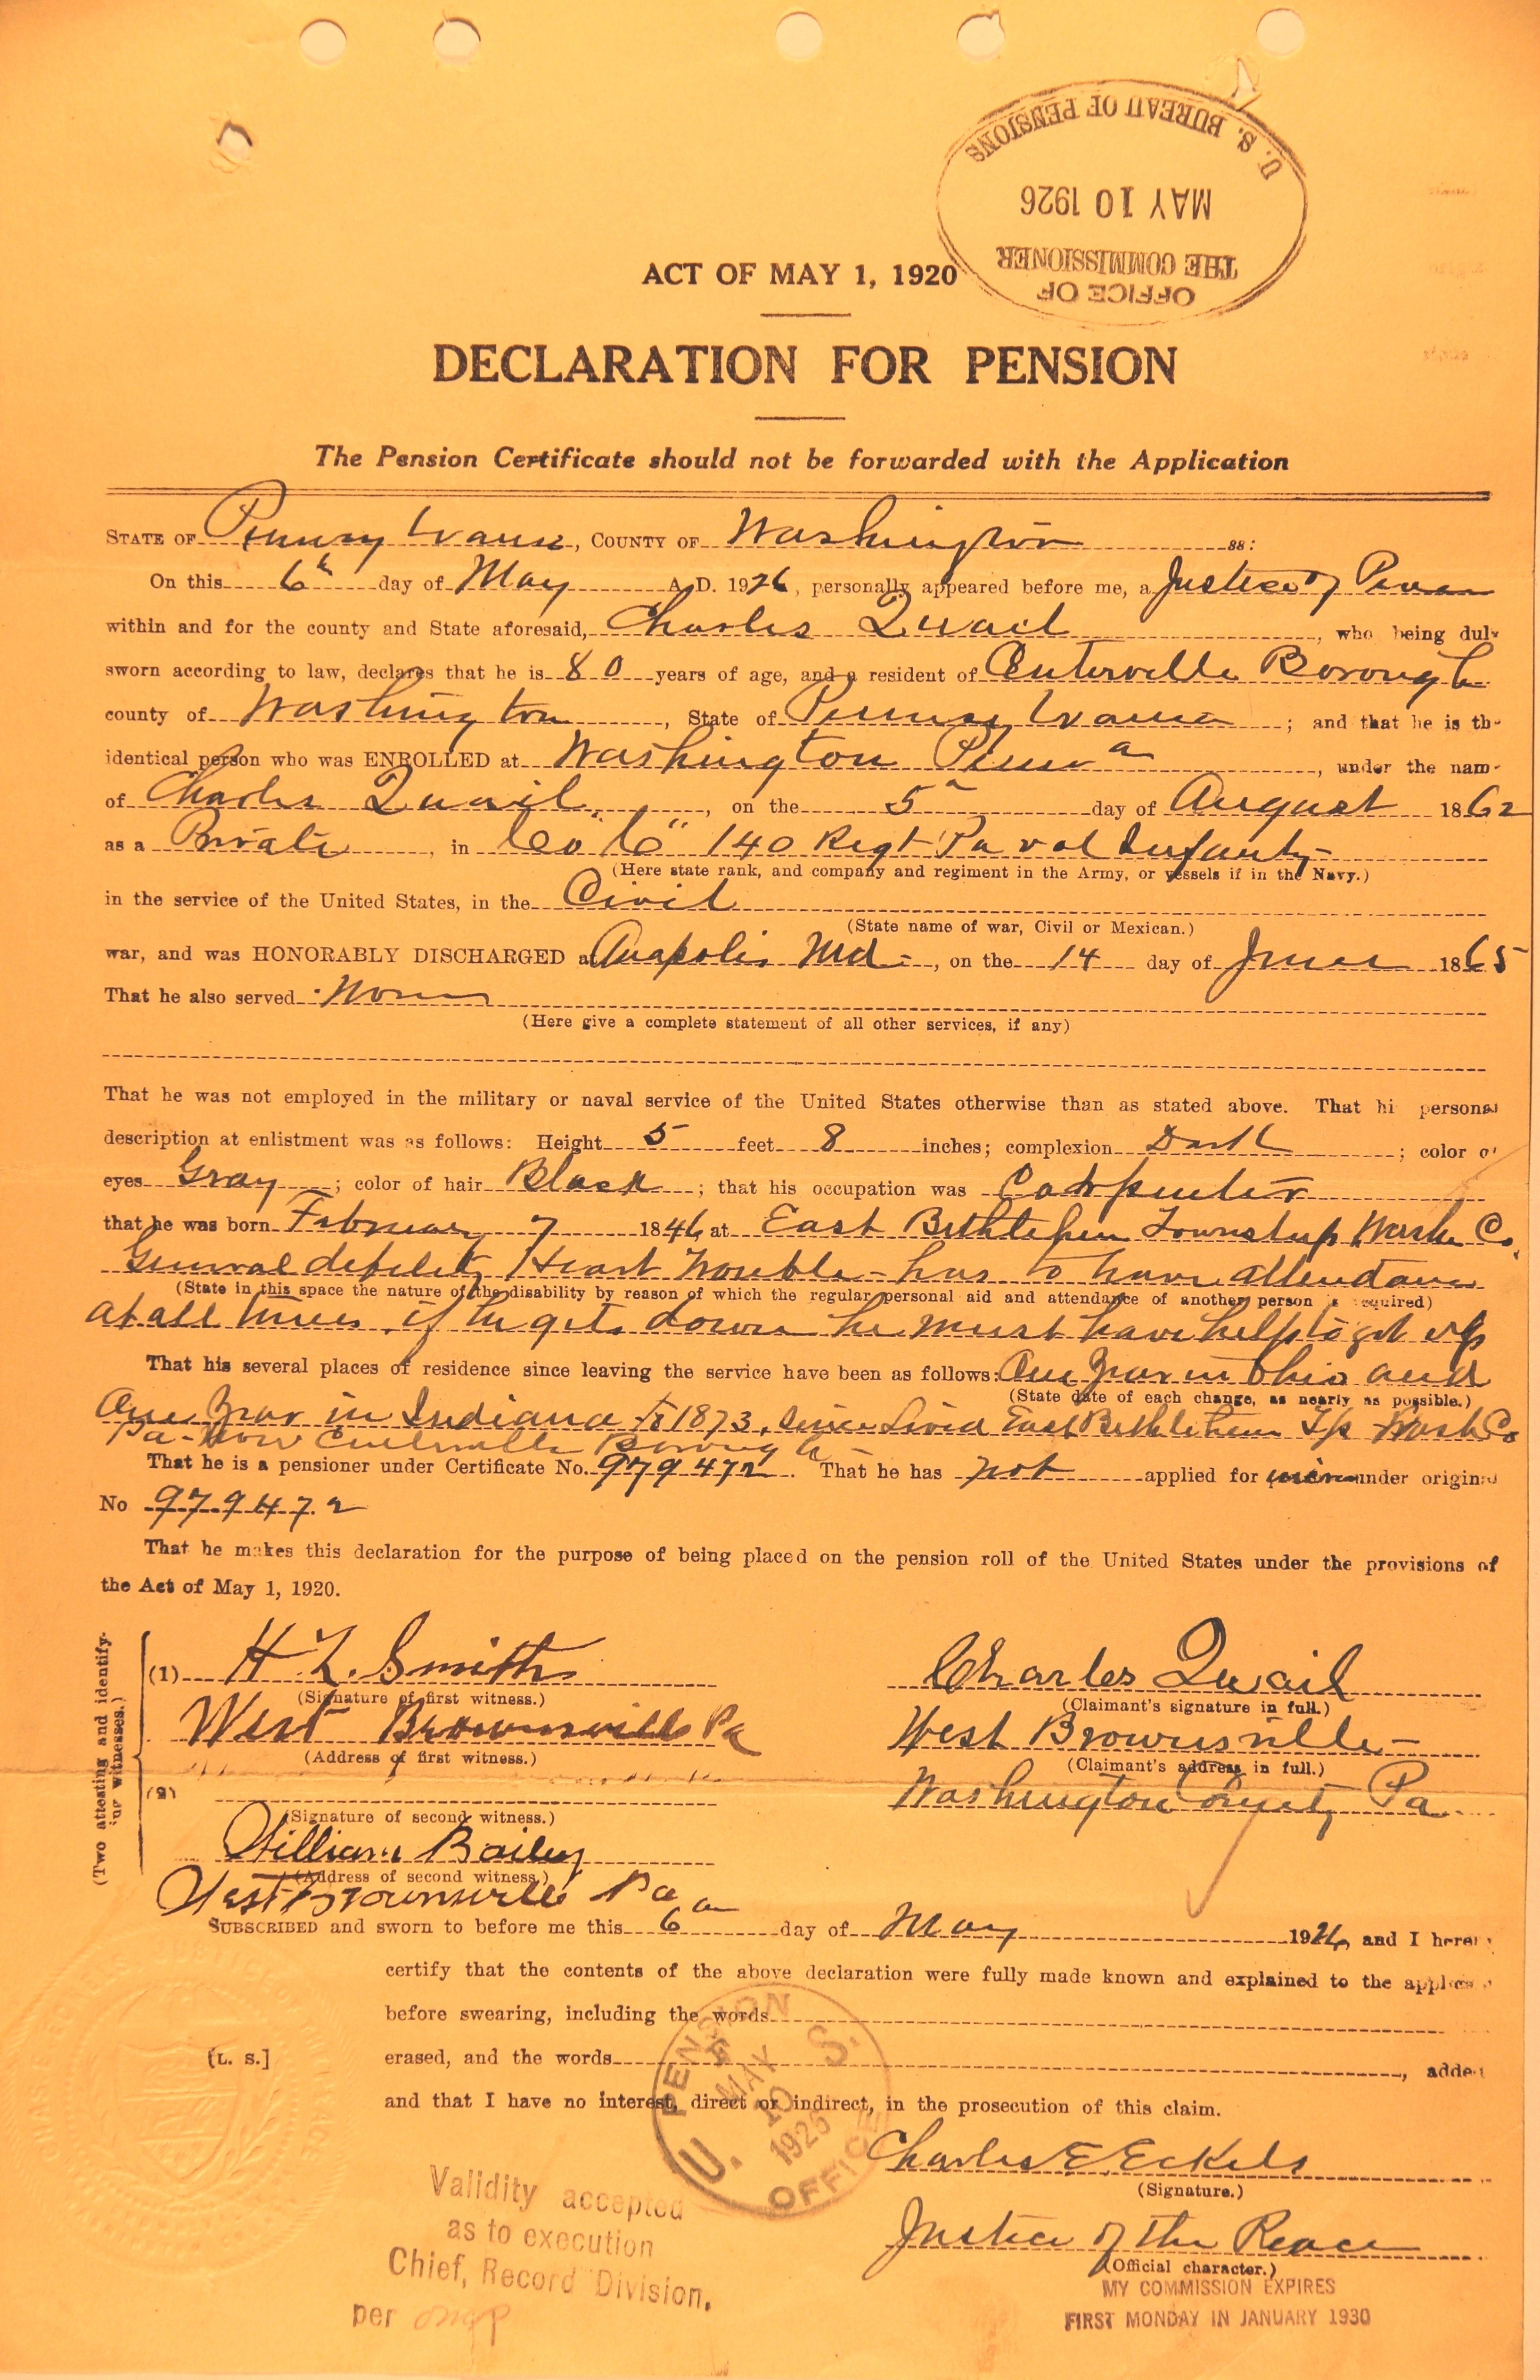 U. S. BUREAU OF PENSIONS
MAY 10 1926
THE COMMISSIONER
OFFICE OF
ACT OF MAY 1, 1920
DECLARATION FOR PENSION
The Pension Certificate should not be forwarded with the Application
STATE OF Pennsylvania, COUNTY OF Washington ss:
On this 6th day of May A. D. 1926, personally appeared before me, a Justice of Peace
within and for the county and State aforesaid, Charles Quail, who being duly
sworn according to law, declares that he is 80 years of age, and a resident of Centerville Borough
county of Washington, State of Pennsylvania; and that he is th
identical person who was ENROLLED at Washington Penna, under the nam
of Charles Quail, on the 5th day of August 1862
as a Private, in Co "C" 140 Regt Pa Vol Infanty
(Here state rank, and company and regiment in the Army, or vessels if in the Navy.)
in the service of the United States, in the Civil
(State name of war, Civil or Mexican.)
war, and was HONORABLY DISCHARGED at Anapolis Md, on the 14 day of June 1865
That he also served None
(Here give a complete statement of all other services, if any)
That he was not employed in the military or naval service of the United States otherwise than as stated above. That hi personal
description at enlistment was as follows: Height 5 feet 8 inches; complexion Dark; color o
eyes Gray; color of hair Black; that his occupation was Carpenter
that he was born February 7 1846 at East Bethlehem Township Wash Co.
General debility Heart Trouble - has to have attendance
(State in this space the nature of the disability by reason of which the regular personal aid and attendance of another person is required)
at all times, if he gets down he must have help to get up
That his several places of residence since leaving the service have been as follows: One Year in Ohio and
(State date of each change, as nearly as possible.)
One Year in Indiana to 1873. Since lived East Bethlehem Tp Wash Co
Pa - Now Centerville Borough
That he is a pensioner under Certificate No. 979472. That he has not applied for under original
No 979472
That he makes this declaration for the purpose of being placed on the pension roll of the United States under the provisions of
the Act of May 1, 1920.
(Two attesting and identifying witnesses.)
(1) H L. Smith
(Signature of first witness.)
West Brownsville Pa
(Address of first witness.)
Charles Quail
(Claimant's signature in full.)
West Brownsville
(Claimant's address in full.)
Washington County Pa
(2)
(Signature of second witness.)
William Bailey
(Address of second witness.)
West Brownsville Pa
SUBSCRIBED and sworn to before me this 6th day of May 1926, and I here
certify that the contents of the above declaration were fully made known and explained to the applica
before swearing, including the words
erased, and the words, added
and that I have no interest, direct or indirect, in the prosecution of this claim.
[L. S.]
U. S. PENSION OFFICE
MAY 10 1926
Charles E. Eckels
(Signature.)
Justice of the Peace
(Official character.)
MY COMMISSION EXPIRES
FIRST MONDAY IN JANUARY 1930
Validity accepted
as to execution
Chief, Record Division.
per